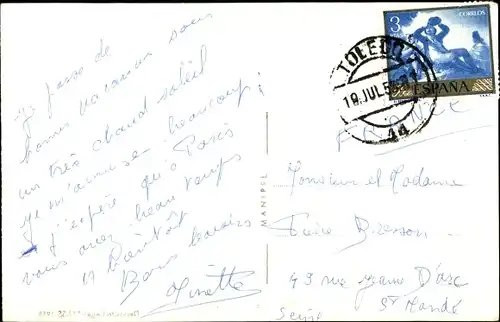 Je passe de
bonnes vacances sous
un très chaud soleil
je m'amuse beaucoup !
J'espère qu'à Paris
vous avez beau temps
A bientôt
Bons baisers
Ginette
MANIPEL
3
PTAS
CORREOS
ESPAÑA
TOLEDO
19 JUL 58
44
FRANCE
Monsieur et Madame
Pierre
49 rue Jeanne D'Arc
St Mandé
Seine